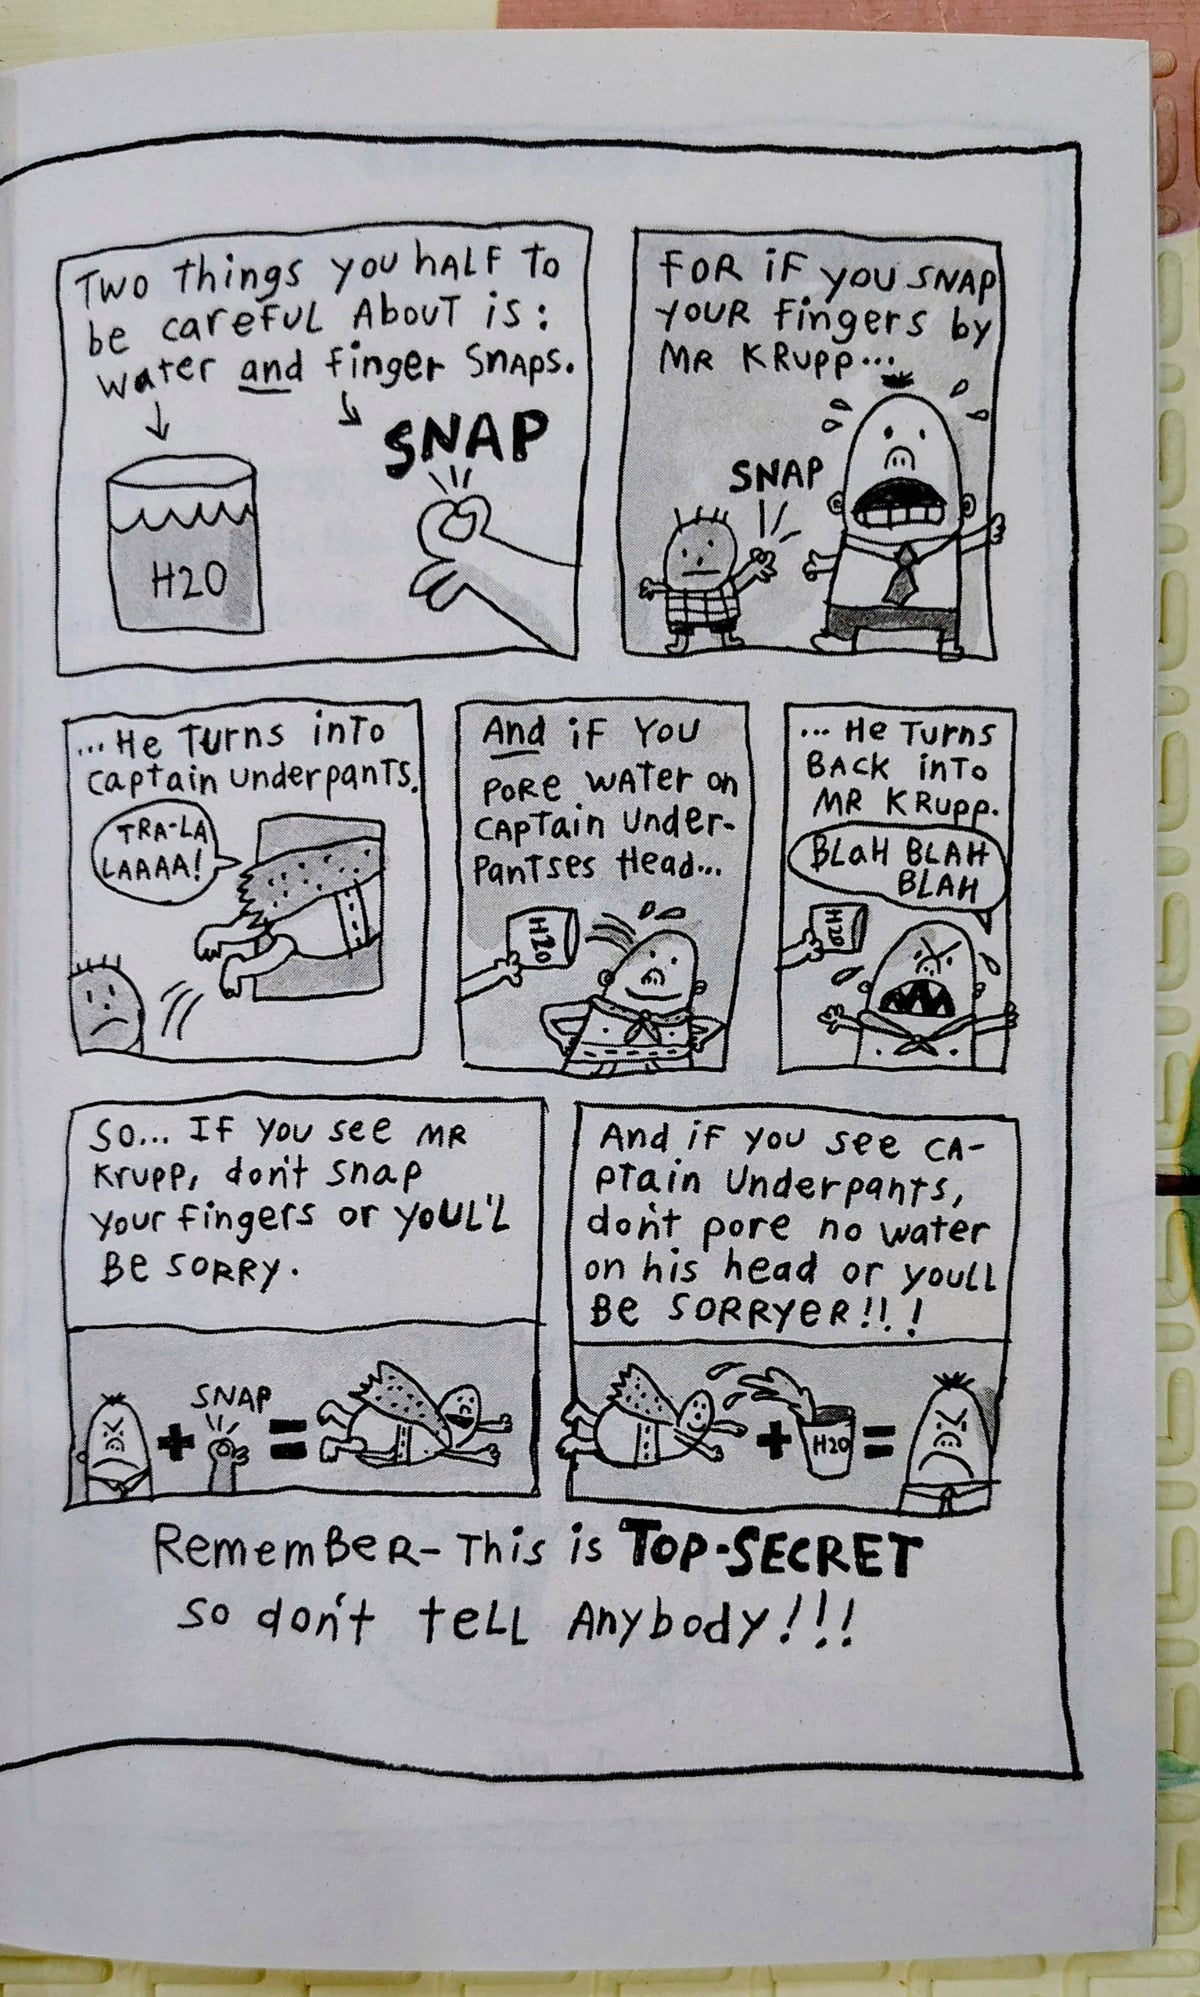 Two things you hALF To
be careFuL About is:
water and finger SnAps.
SNAP
H2O
FOR iF you SNAP
YOUR fingers by
MR KRupp...
SNAP
...He Turns inTo
Captain underpanTs.
TRA-LA
LAAAA!
And iF You
PoRe WATeR on
CAPTain Under-
Pantses Head...
H2O
... He Turns
BACK inTo
MR KRupp.
BLaH BLAH
BLAH
H2O
So... IF you see MR
Krupp, don't snap
your fingers or youL'L
Be SoRRy.
SNAP
+ =
And iF you see CA-
PTain Underpants,
don't pore no water
on his head or youLL
Be SORRYER!!!
+ H2O =
RememBeR- This is TOP-SECRET
So don't teLL Anybody!!!